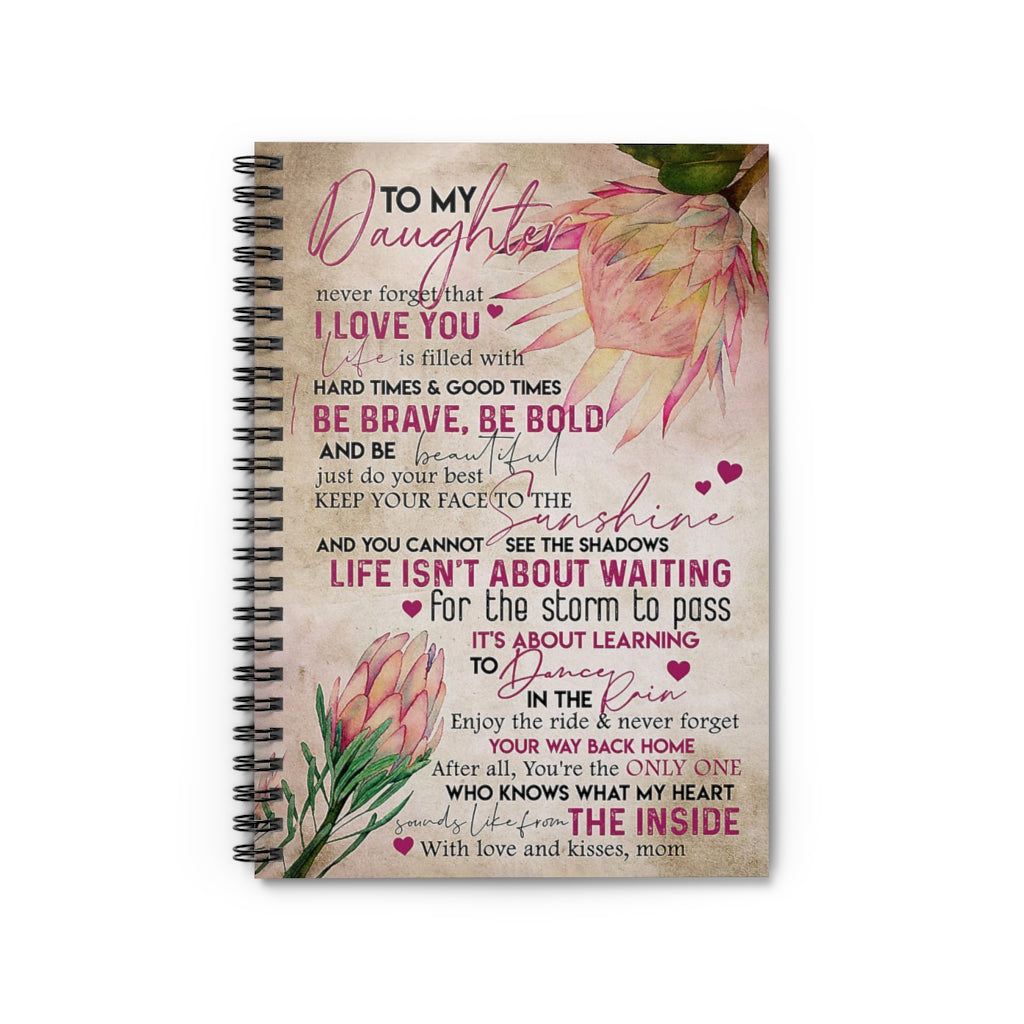 TO MY
Daughter
never forget that
I LOVE YOU
Life is filled with
HARD TIMES & GOOD TIMES
BE BRAVE, BE BOLD
AND BE beautiful
just do your best
KEEP YOUR FACE TO THE
Sunshine
AND YOU CANNOT SEE THE SHADOWS
LIFE ISN'T ABOUT WAITING
for the storm to pass
IT'S ABOUT LEARNING
TO Dance
IN THE Rain
Enjoy the ride & never forget
YOUR WAY BACK HOME
After all, You're the ONLY ONE
WHO KNOWS WHAT MY HEART
sounds like from THE INSIDE
With love and kisses, mom